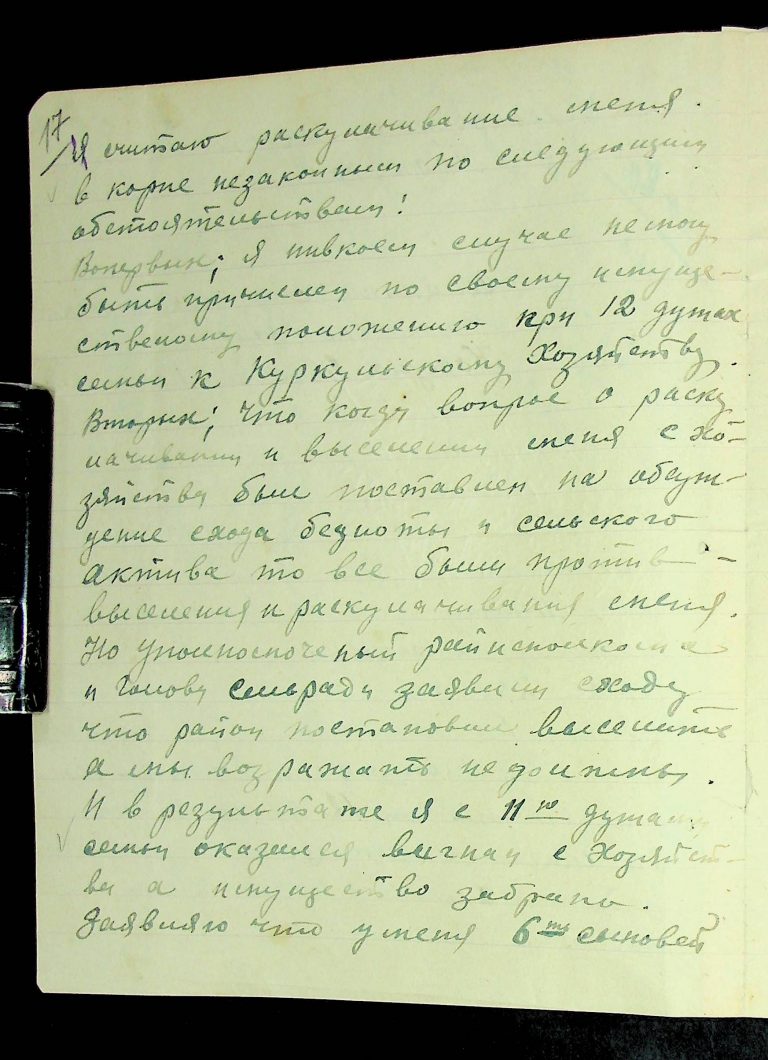 17
Я считаю раскулачивание меня
в корне незаконным по следующим
обстоятельствам:
Вопервых; я нивкоем случае немогу
быть причислен по своему имуще-
ственому положению при 12 душах
семьи к Куркульскому Хозяйству.
Вторых; что когда вопрос о раску
лачивании и выселении меня с хо-
зяйства был поставлен на обсуж-
дение схода бедноты и сельского
актива то все были против -
выселения и раскулачивания меня.
Но уполномоченый райисполкома
и Голова сельради заявили сходу
что район постановил выселить
а мы возражать недолжны.
И в результате я с 11ю душами
семьи оказался выгнан с хозяйст-
ва а имущество забрано.
Заявляю что уменя 6ть сыновей